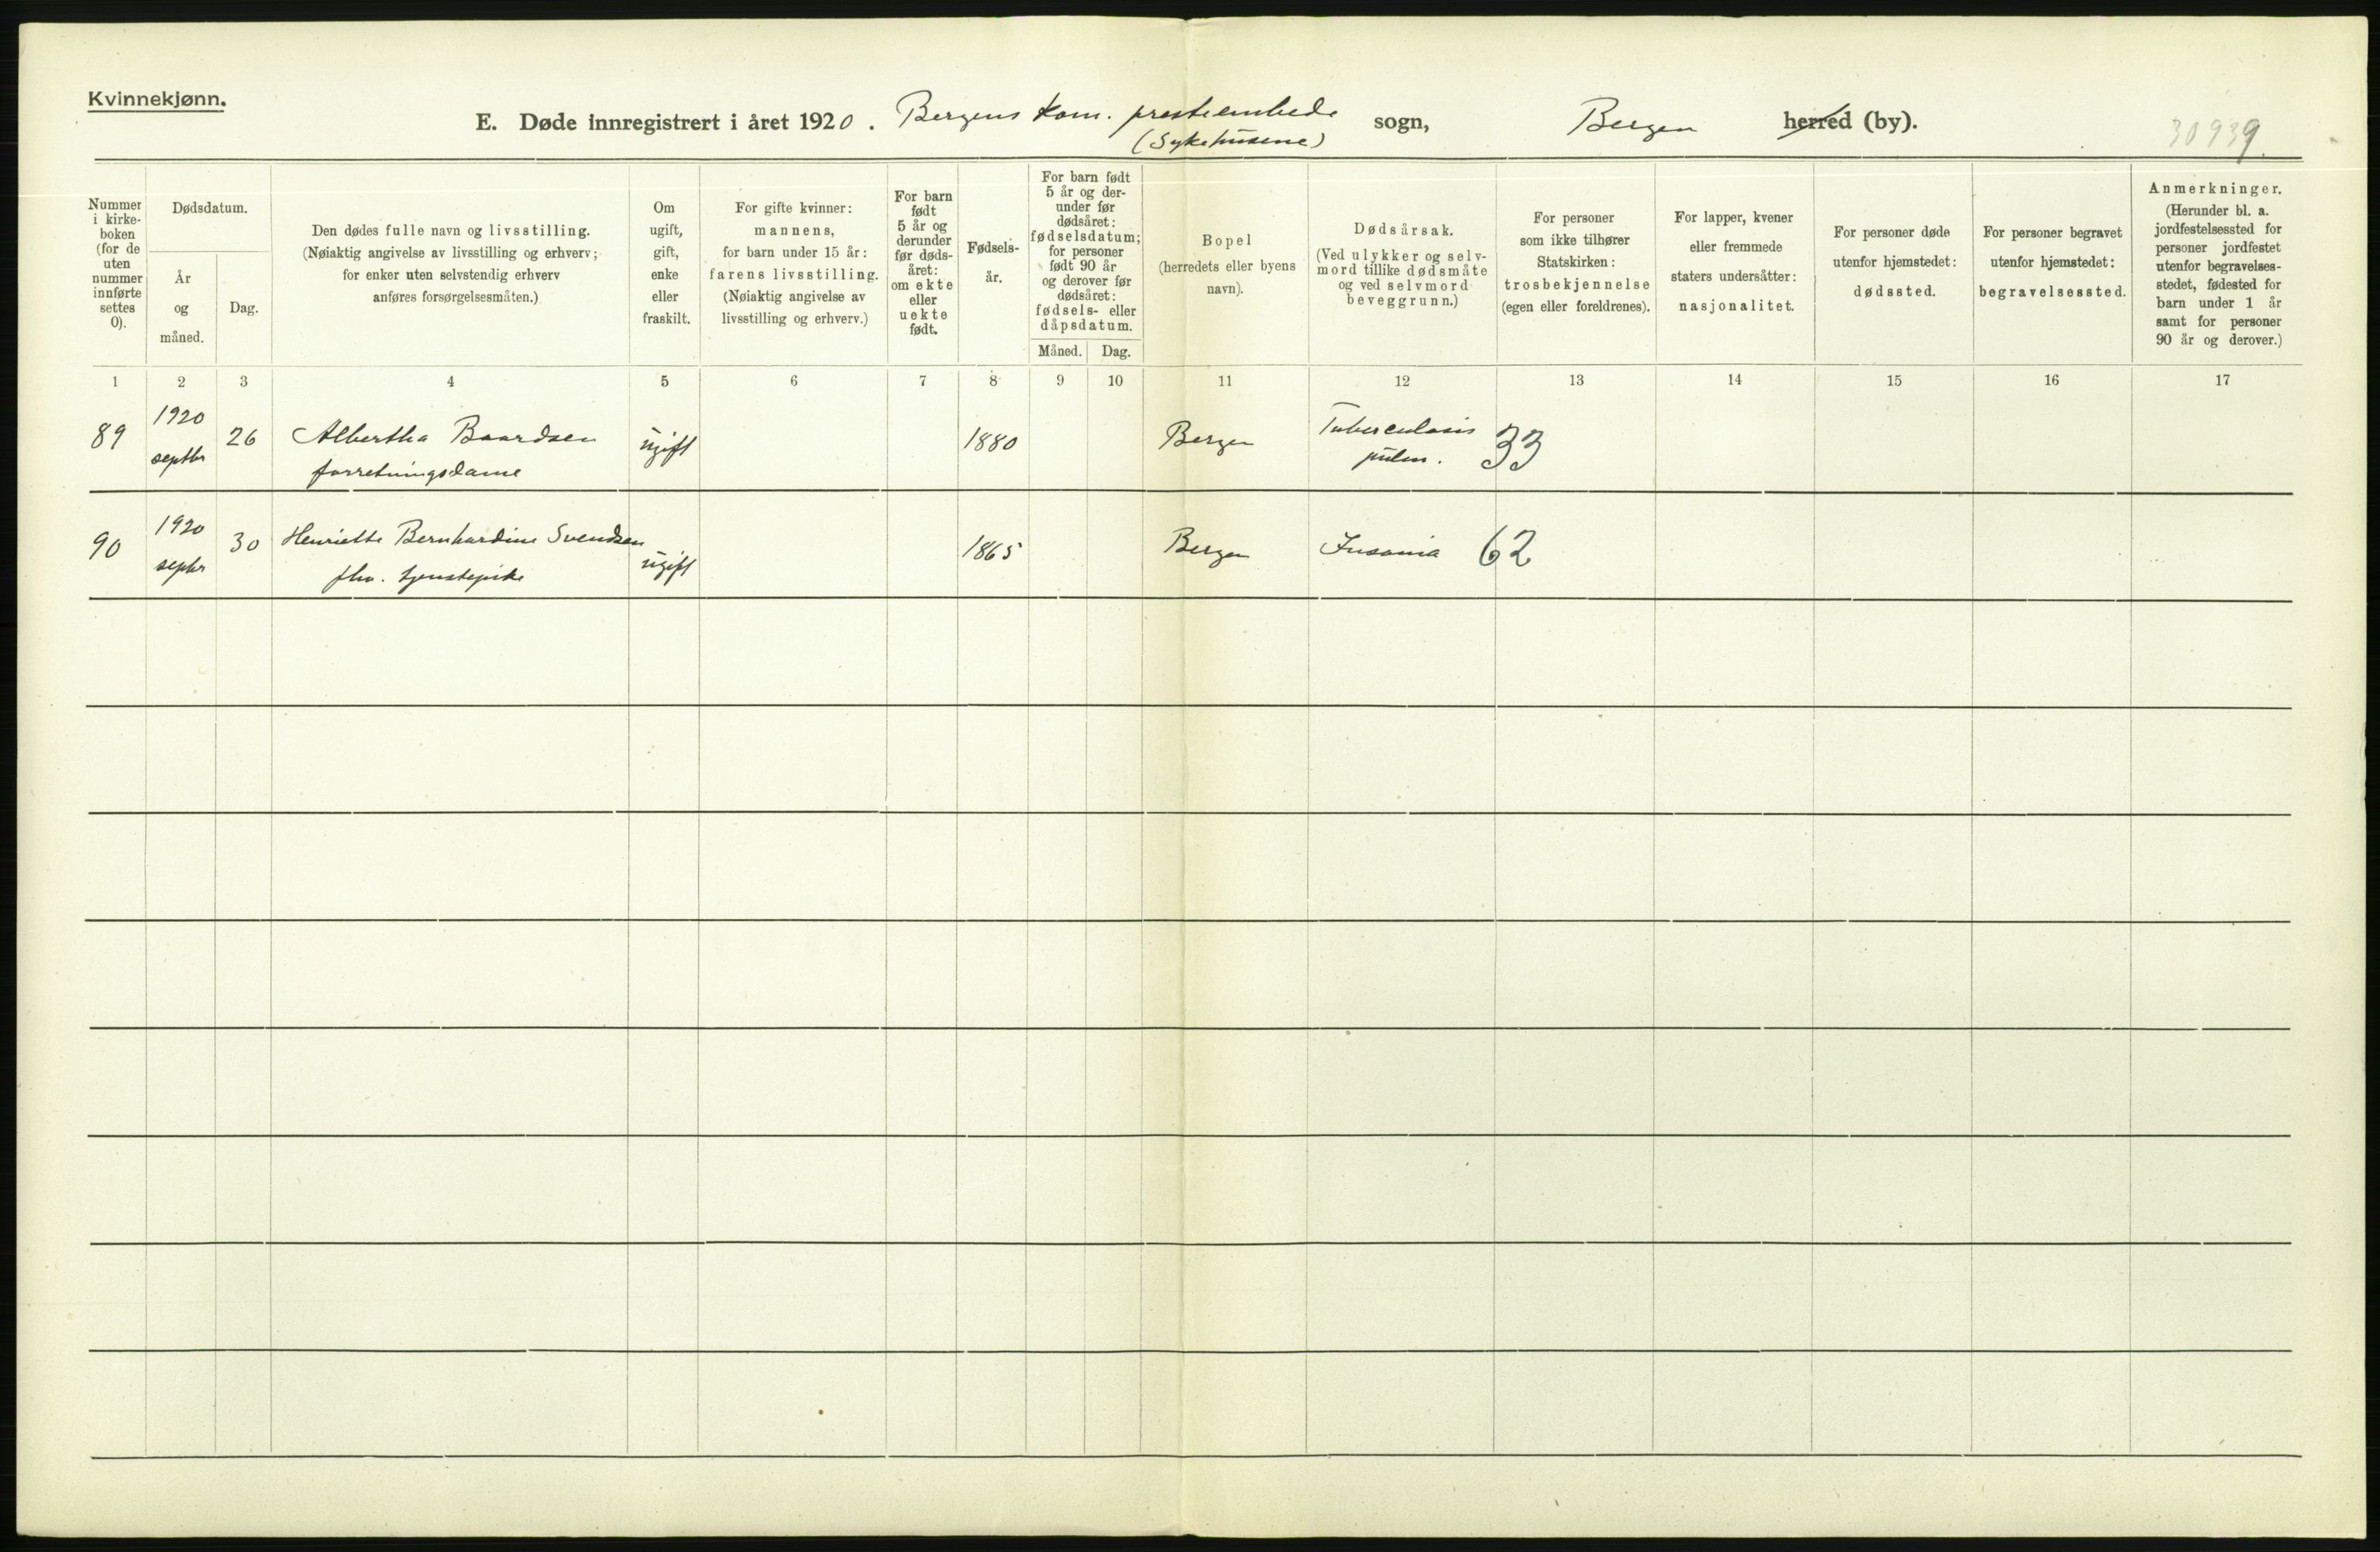 Kvinnekjønn.
E. Døde innregistrert i året 1920. Bergens kom. presteembede sogn, Bergen herred (by).
(Sykehusene)
30939.
Nummer
i kirke-
boken
(for de
uten
nummer
innførte
settes
0).
Dødsdatum.
År
og
måned.
Dag.
Den dødes fulle navn og livsstilling.
(Nøiaktig angivelse av livsstilling og erhverv;
for enker uten selvstendig erhverv
anføres forsørgelsesmåten.)
Om
ugift,
gift,
enke
eller
fraskilt.
For gifte kvinner:
mannens,
for barn under 15 år:
farens livsstilling.
(Nøiaktig angivelse av
livsstilling og erhverv.)
For barn
født
5 år og
derunder
før døds-
året:
om ekte
eller
uekte
født.
Fødsels-
år.
For barn født
5 år og der-
under før
dødsåret:
fødselsdatum;
for personer
født 90 år
og derover før
dødsåret:
fødsels- eller
dåpsdatum.
Måned. Dag.
Bopel
(herredets eller byens
navn).
Dødsårsak.
(Ved ulykker og selv-
mord tillike dødsmåte
og ved selvmord
beveggrunn.)
For personer
som ikke tilhører
Statskirken:
trosbekjennelse
(egen eller foreldrenes).
For lapper, kvener
eller fremmede
staters undersåtter:
nasjonalitet.
For personer døde
utenfor hjemstedet:
dødssted.
For personer begravet
utenfor hjemstedet:
begravelsessted.
Anmerkninger.
(Herunder bl. a.
jordfestelsessted for
personer jordfestet
utenfor begravelses-
stedet, fødested for
barn under 1 år
samt for personer
90 år og derover.)
1 2 3 4 5 6 7 8 9 10 11 12 13 14 15 16 17
89 1920 septbr 26 Albertha Baardsen ugift 1880 Bergen Tuberculosis 33
forretningsdame pulm.
90 1920 septbr 30 Henriette Bernhardine Svendsen ugift 1865 Bergen Insania 62
fhv. tjenestepike